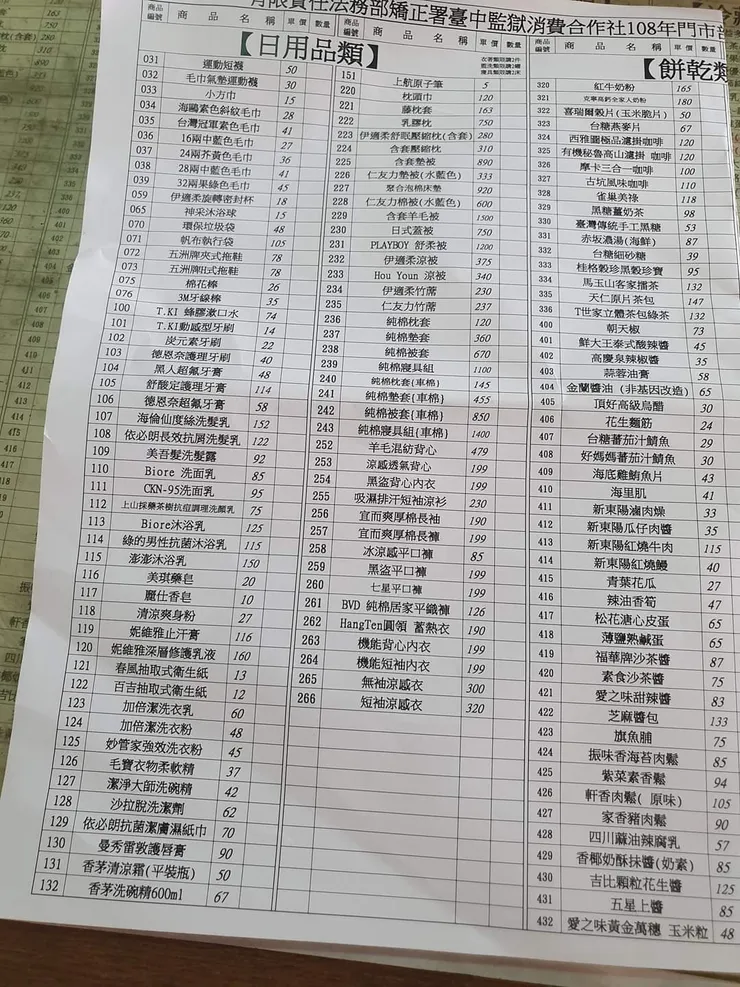 有限責任法務部矯正署臺中監獄消費合作社108年門市部
商品編號 商品名稱 單價 數量
【日用品類】
031 運動短襪 50
032 毛巾氣墊運動襪 30
033 小方巾 15
034 海鷗素色斜紋毛巾 28
035 台灣冠軍素色毛巾 41
036 16兩中藍色毛巾 27
037 24兩芥黃色毛巾 36
038 28兩中藍色毛巾 41
039 32兩果綠色毛巾 45
059 伊適柔旋轉密封杯 18
065 神采沐浴球 15
070 環保垃圾袋 48
071 帆布執行袋 105
072 五洲牌夾式拖鞋 78
073 五洲牌H式拖鞋 78
075 棉花棒 26
076 3M牙線棒 35
100 T.KI 蜂膠漱口水 74
101 T.KI動感型牙刷 14
102 炭元素牙刷 22
103 德恩奈護理牙刷 40
104 黑人超氟牙膏 48
105 舒酸定護理牙膏 114
106 德恩奈超氟牙膏 58
107 海倫仙度絲洗髮乳 152
108 依必朗長效抗屑洗髮乳 122
109 美吾髮洗髮露 92
110 Biore 洗面乳 85
111 CKN-95洗面乳 95
112 上山採藥茶樹抗痘調理洗顏乳 75
113 Biore沐浴乳 125
114 綠的男性抗菌沐浴乳 115
115 澎澎沐浴乳 150
116 美琪藥皂 20
117 麗仕香皂 10
118 清涼爽身粉 27
119 妮維雅止汗膏 116
120 妮維雅深層修護乳液 160
121 春風抽取式衛生紙 13
122 百吉抽取式衛生紙 12
123 加倍潔洗衣乳 60
124 加倍潔洗衣粉 48
125 妙管家強效洗衣粉 45
126 毛寶衣物柔軟精 37
127 潔淨大師洗碗精 42
128 沙拉脫洗潔劑 62
129 依必朗抗菌潔膚濕紙巾 70
130 曼秀雷敦護唇膏 90
131 香茅清涼霜(平裝瓶) 50
132 香茅洗碗精600ml 67
商品編號 商品名稱 單價 數量
衣著類限購2件
盥洗類限購2罐
寢具類限購2床
151 上航原子筆 5
220 枕頭巾 120
221 藤枕 163
222 乳膠枕 750
223 伊適柔舒眠壓縮枕(含套) 280
224 含套壓縮枕 310
225 含套墊被 890
226 仁友力墊被(水藍色) 333
227 聚合泡棉床墊 920
228 仁友力棉被(水藍色) 600
229 含套羊毛被 1500
230 日式蓋被 750
231 PLAYBOY 舒柔被 1200
232 伊適柔涼被 375
233 Hou Youn 涼被 340
234 伊適柔竹蓆 230
235 仁友力竹蓆 237
236 純棉枕套 120
237 純棉墊套 360
238 純棉被套 670
239 純棉寢具組 1100
240 純棉枕套{車棉} 145
241 純棉墊套{車棉} 455
242 純棉被套{車棉} 850
243 純棉寢具組{車棉} 1400
252 羊毛混紡背心 479
253 涼感透氣背心 199
254 黑盜背心內衣 199
255 吸濕排汗短袖涼衫 230
256 宜而爽厚棉長袖 190
257 宜而爽厚棉長褲 199
258 冰涼感平口褲 85
259 黑盜平口褲 199
260 七星平口褲 199
261 BVD 純棉居家平織褲 126
262 HangTen圓領 蓄熱衣 190
263 機能背心內衣 199
264 機能短袖內衣 199
265 無袖涼感衣 300
266 短袖涼感衣 320
商品編號 商品名稱 單價 數量
【餅乾類
320 紅牛奶粉 165
321 克寧高鈣全家人奶粉 180
322 喜瑞爾穀片(玉米脆片) 50
323 台糖燕麥片 67
324 西雅圖極品濾掛咖啡 120
325 有機秘魯高山濾掛 咖啡 120
326 摩卡三合一咖啡 100
327 古坑風味咖啡 110
328 雀巢美祿 118
329 黑糖薑奶茶 98
330 臺灣傳統手工黑糖 53
331 赤坂濃湯(海鮮) 87
332 台糖細砂糖 39
333 桂格穀珍黑穀珍寶 95
334 馬玉山客家擂茶 132
335 天仁原片茶包 147
336 T世家立體茶包綠茶 132
400 朝天椒 73
401 鮮大王泰式酸辣醬 45
402 高慶泉辣椒醬 35
403 蒜蓉油膏 58
404 金蘭醬油 (非基因改造) 65
405 頂好高級烏醋 30
406 花生麵筋 24
407 台糖蕃茄汁鯖魚 29
408 好媽媽蕃茄汁鯖魚 30
409 海底雞鮪魚片 43
410 海里肌 41
411 新東陽滷肉燥 33
412 新東陽瓜仔肉醬 35
413 新東陽紅燒牛肉 115
414 新東陽紅燒鰻 40
415 青葉花瓜 27
416 辣油香筍 47
417 松花溏心皮蛋 65
418 薄鹽熟鹹蛋 65
419 福華牌沙茶醬 87
420 素食沙茶醬 75
421 愛之味甜辣醬 83
422 芝麻醬包 133
423 旗魚脯 75
424 振味香海苔肉鬆 85
425 紫菜素香鬆 94
426 軒香肉鬆( 原味) 105
427 家香豬肉鬆 90
428 四川蔴油辣腐乳 57
429 香椰奶酥抹醬(奶素) 85
430 吉比顆粒花生醬 125
431 五星上醬 85
432 愛之味黃金萬穗 玉米粒 48